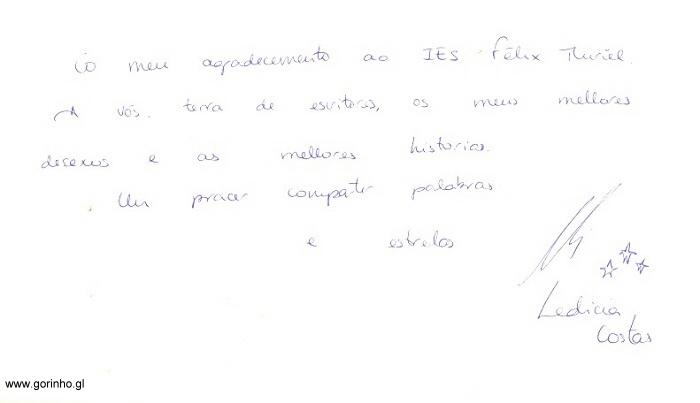 O meu agradecemento ao IES Félix Muriel.
A vós, terra de escritores, os meus mellores
desexos e as mellores historias.
Un pracer compatir palabras
e estrelas
Ledicia
Costas
www.gorinho.gl